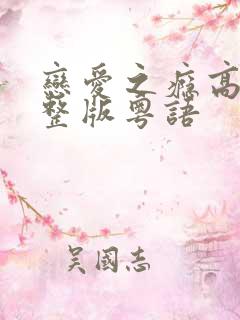 戀愛之癮高
整版粵語
吳國志